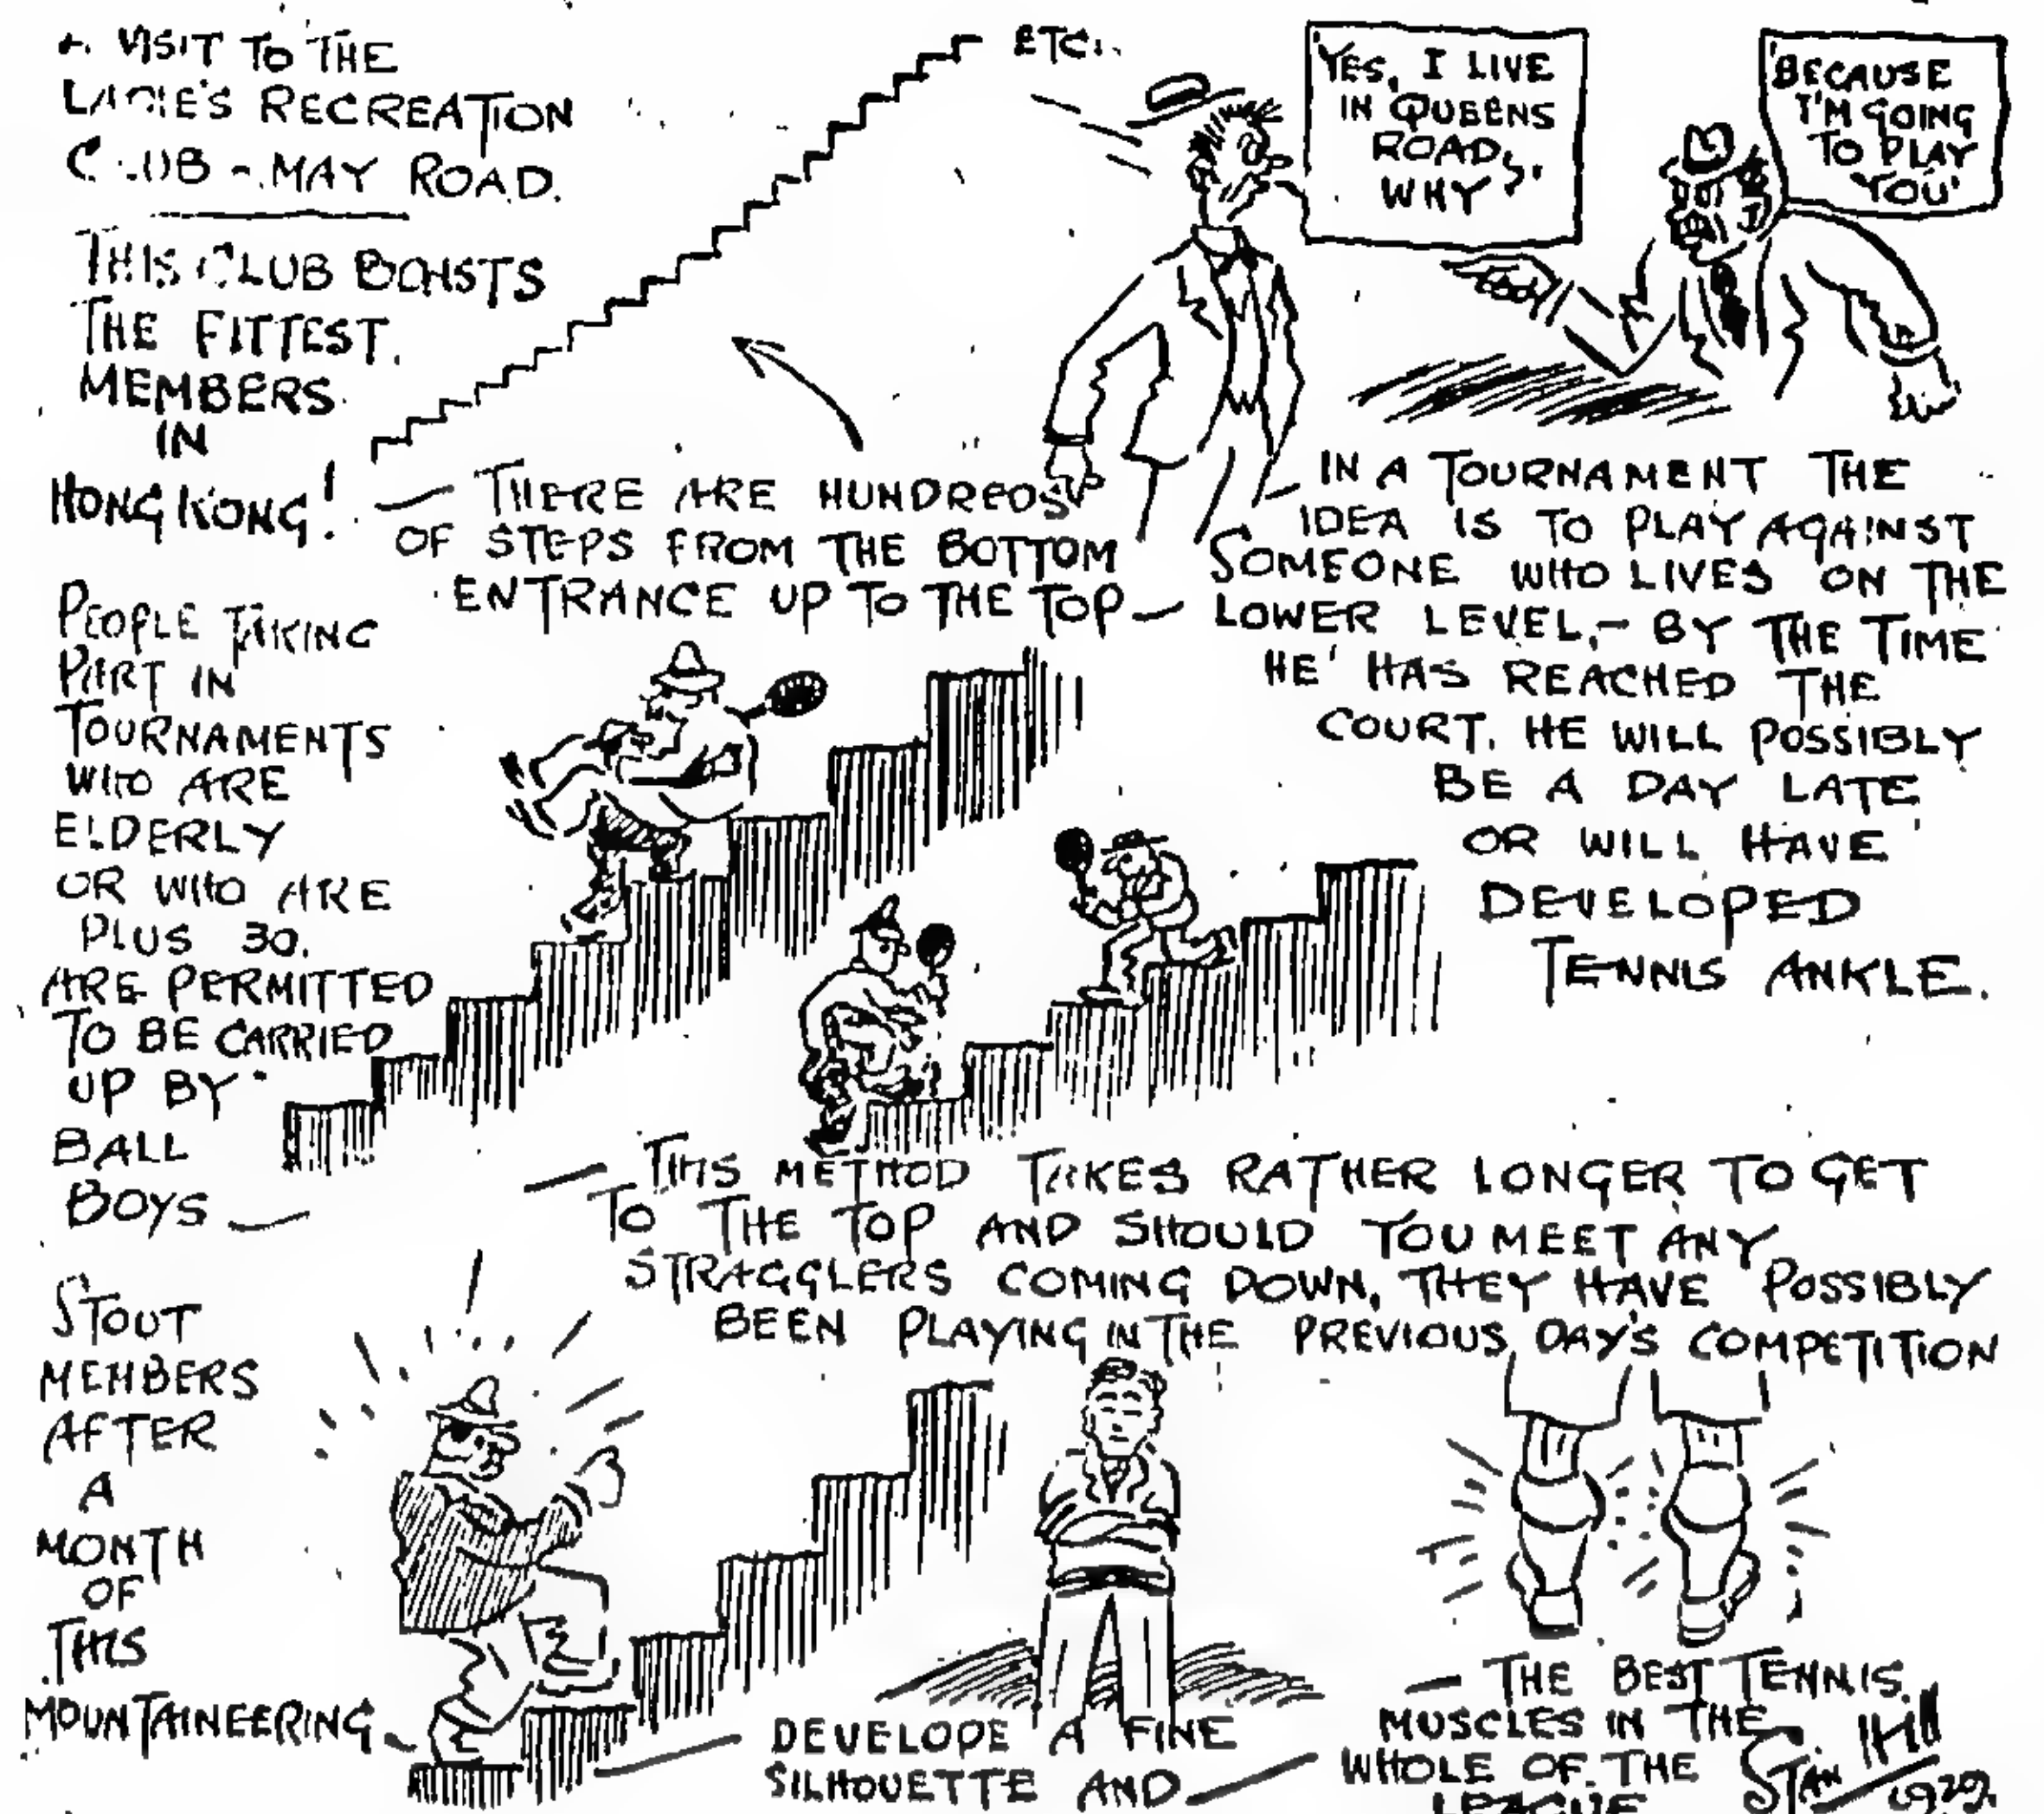 A VISIT TO THE
LADIE'S RECREATION
CLUB - MAY ROAD.
THIS CLUB BOASTS
THE FITTEST
MEMBERS
IN
HONG KONG!
ETC.
- THERE ARE HUNDREDS
OF STEPS FROM THE BOTTOM
ENTRANCE UP TO THE TOP -
'YES, I LIVE
IN QUEENS
ROAD,
WHY?'
'BECAUSE
I'M GOING
TO PLAY
YOU'
- IN A TOURNAMENT THE
IDEA IS TO PLAY AGAINST
SOMEONE WHO LIVES ON THE
LOWER LEVEL, - BY THE TIME
HE HAS REACHED THE
COURT. HE WILL POSSIBLY
BE A DAY LATE
OR WILL HAVE
DEVELOPED
TENNIS ANKLE.
PEOPLE TAKING
PART IN
TOURNAMENTS
WHO ARE
ELDERLY
OR WHO ARE
PLUS 30.
ARE PERMITTED
TO BE CARRIED
UP BY
BALL
BOYS -
- THIS METHOD TAKES RATHER LONGER TO GET
TO THE TOP AND SHOULD YOU MEET ANY
STRAGGLERS COMING DOWN, THEY HAVE POSSIBLY
BEEN PLAYING IN THE PREVIOUS DAY'S COMPETITION
STOUT
MEMBERS
AFTER
A
MONTH
OF
THIS
MOUNTAINEERING -
- DEVELOPE A FINE
SILHOUETTE AND -
- THE BEST TENNIS
MUSCLES IN THE
WHOLE OF THE
LEAGUE
STAN HILL
1929.